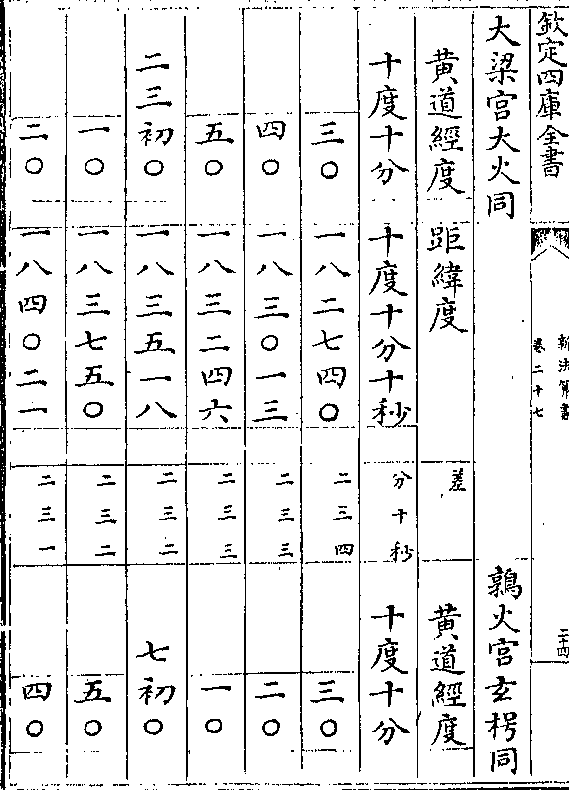 欽定四庫全書
新法算書
卷二十七
二十四
大梁宮大火同 鶉火宮玄枵同
黃道經度 距緯度 差 黃道經度
十度十分 十度十分十秒 分十秒 十度十分
三〇 一八二七四〇 二三四 三〇
四〇 一八三〇一三 二三三 二〇
五〇 一八三二四六 二三三 一〇
二三初〇 一八三五一八 二三二 七初〇
一〇 一八三七五〇 二三二 五〇
二〇 一八四〇二一 二三一 四〇